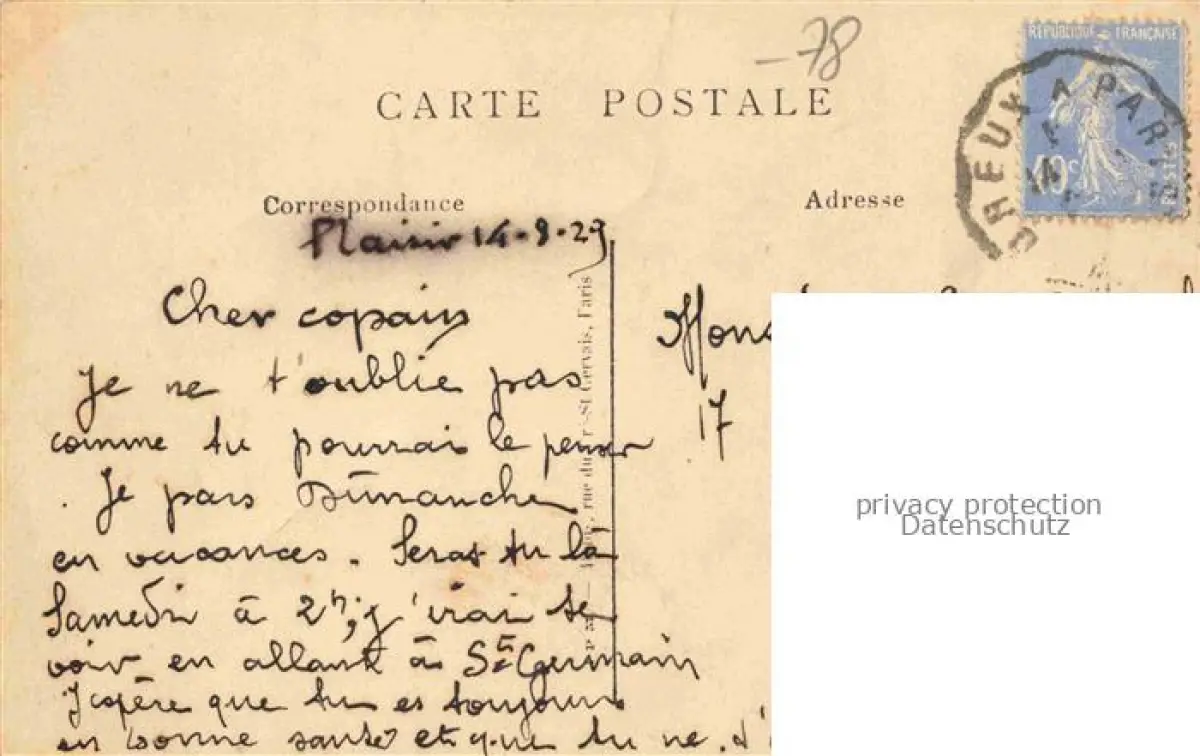 -78
CARTE POSTALE
REPUBLIQUE FRANÇAISE
40c
POSTES
DREUX A PARIS
Correspondance
Adresse
Plaisir 14-9-29
Cher copain
Je ne t'oublie pas
comme tu pourrais le penser
. Je pars Dimanche
en vacances. Seras tu là
Samedi à 2h; j'irai te
voir en allant à St Germain
J'espère que tu es toujours
en bonne santé et que tu ne
rue du St Gervais, Paris
Mons
17
privacy protection
Datenschutz